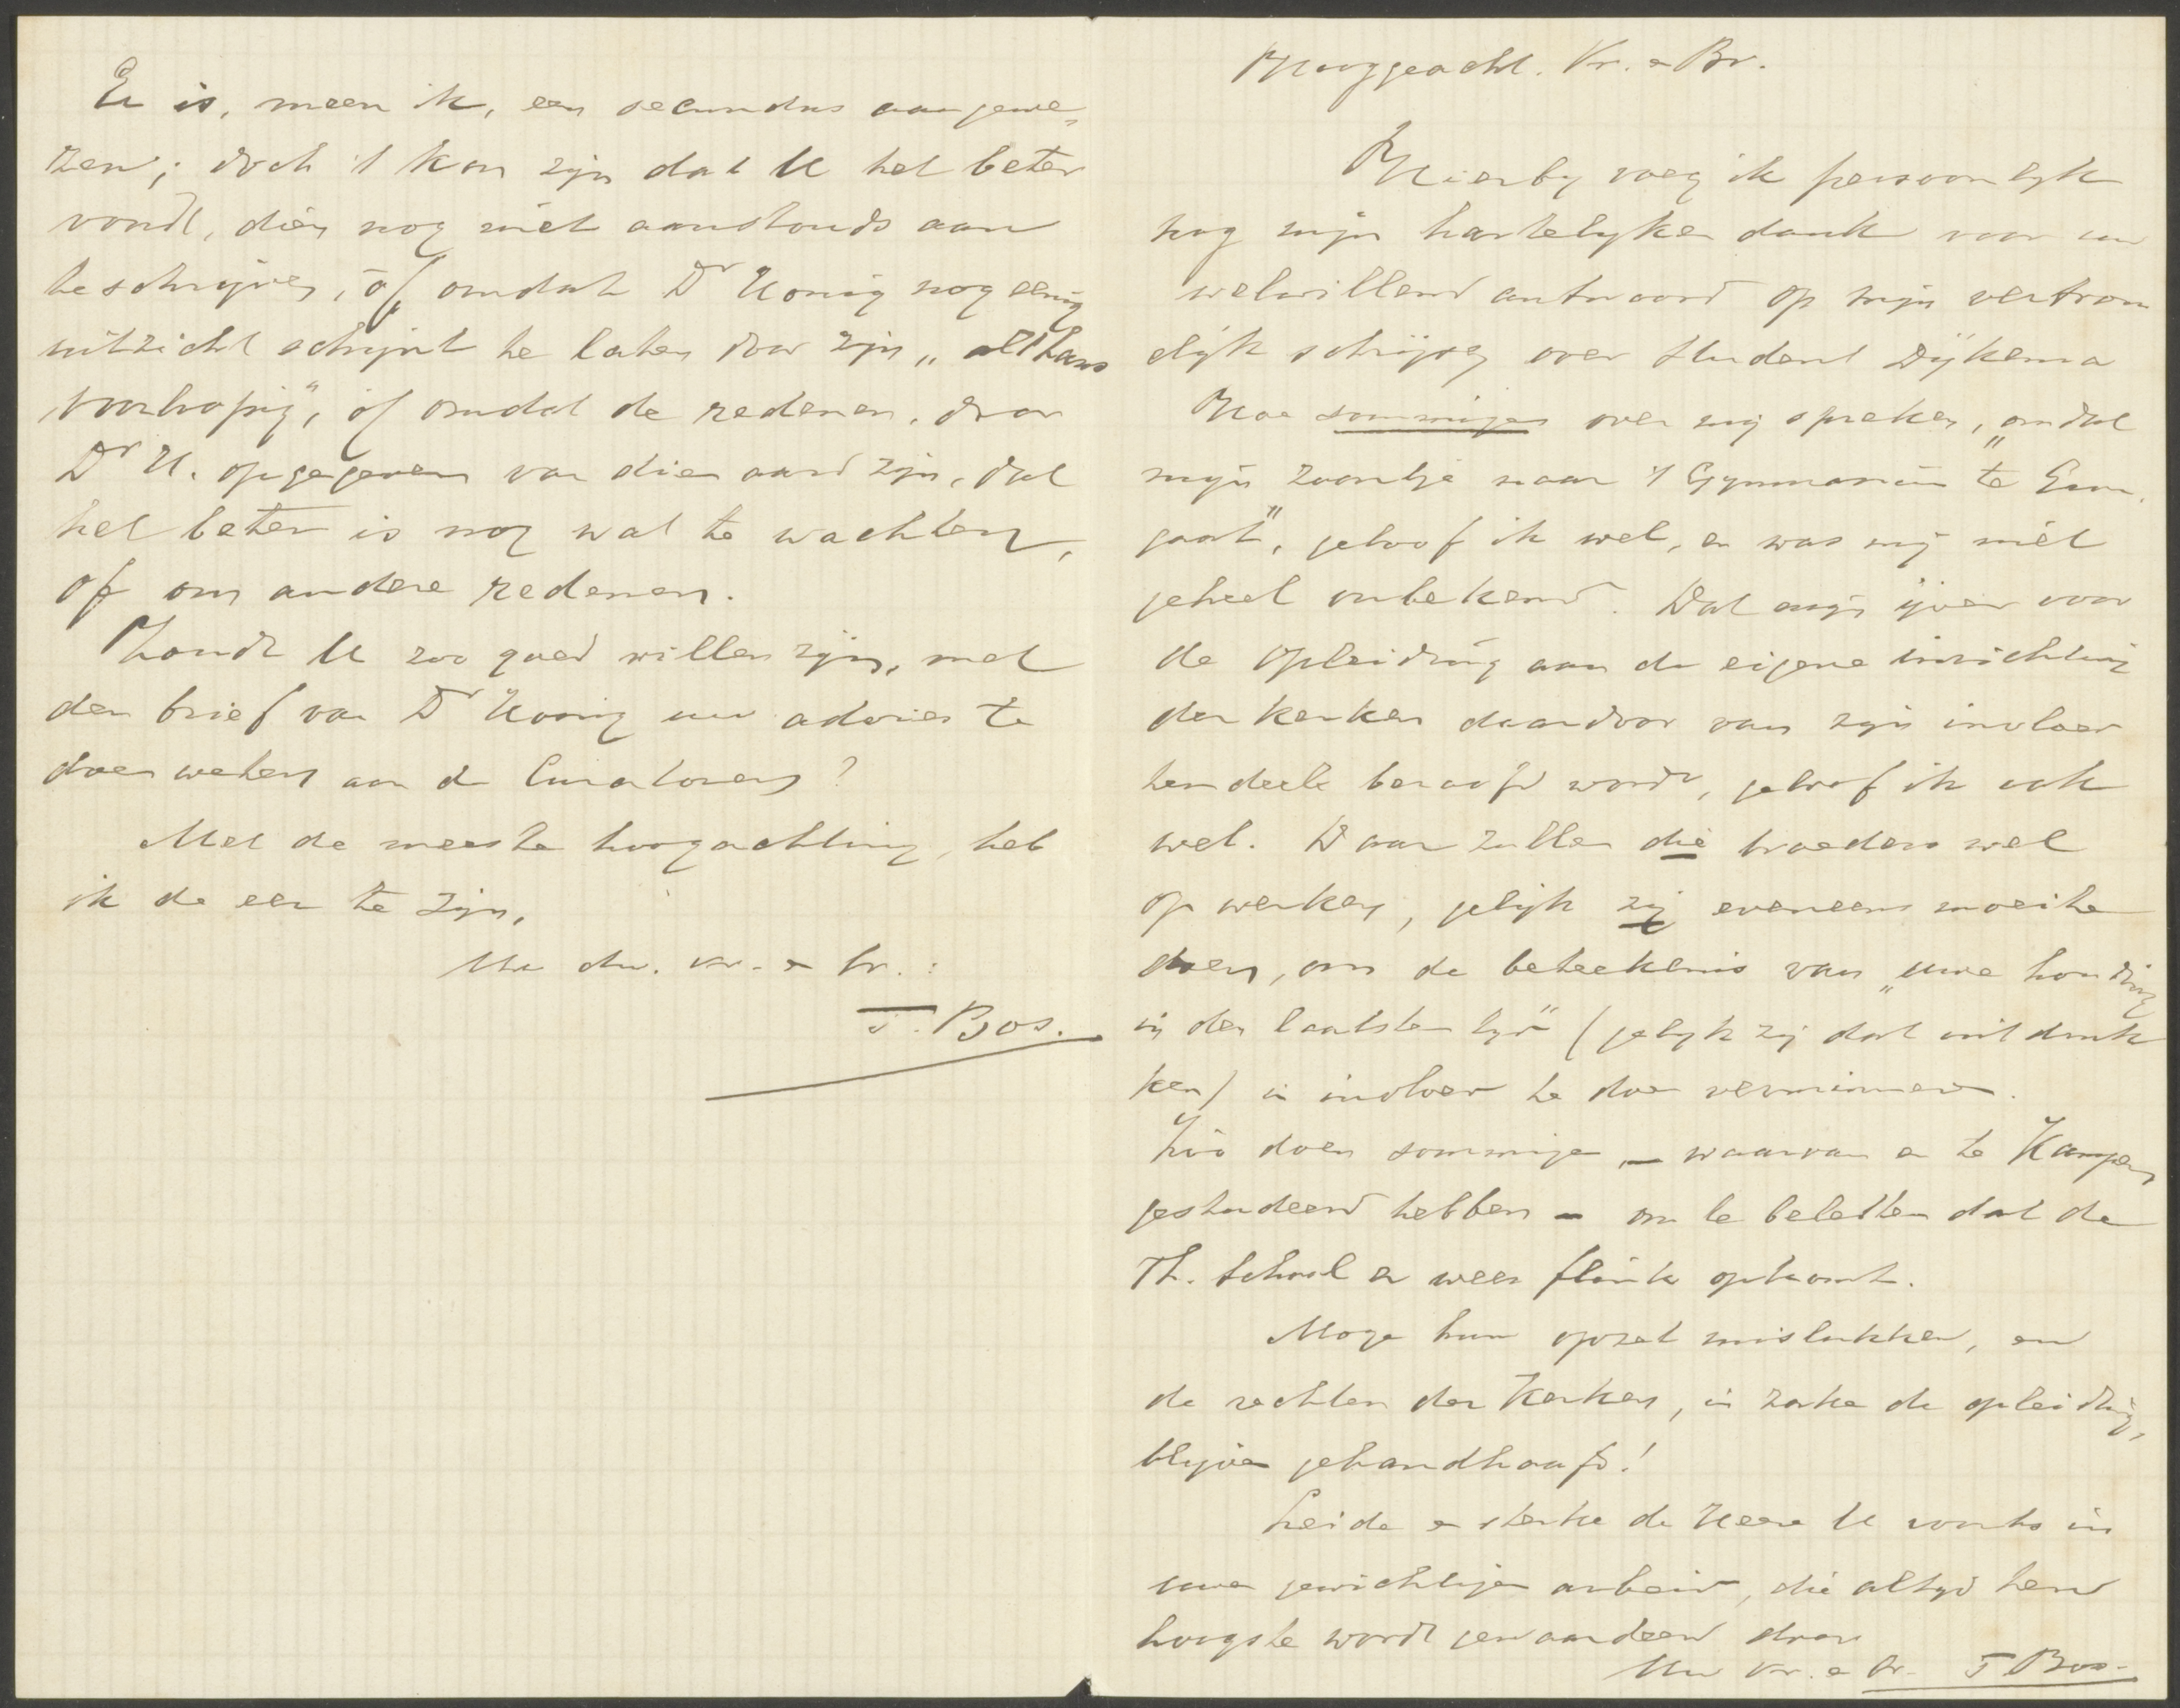 Er is, meen ik, een secundus aangewe-
zen; doch 't kan zijn dat U het beter
vondt, dien nog niet aanstonds aan
te schrijven, óf omdat Dr Honig nog eenig
uitzicht schijnt te laten door zijn „althans
voorloopig", óf omdat de redenen, door
Dr H. opgegeven van dien aard zijn, dat
het beter is nog wat te wachten,
of om andere redenen.
Zoudt U zoo goed willen zijn, met
den brief van Dr Honig uw advies te
doen weten aan de Curatoren?
Met de meeste hoogachting, heb
ik de eer te zijn,
Uw dw. vr. & br.:
T. Bos.
Hooggeacht. Vr. & Br.
Hierby voeg ik persoonlyk
nog mijn hartelyken dank voor uw
welwillend antwoord op mijn vertrou
elijk schrijven over student Dijkema
Hoe sommigen over mij spreken, „omdat
mijn zoontje naar 't Gymnasium te
gaat", geloof ik wel, en was mij niet
geheel onbekend. Dat mijn ijver voor
de opleiding aan de eigene inrichting
der kerken daardoor van zijn invloed
ten deele beroofd wordt, geloof ik ook
wel. Daar zullen die broeders wel
op werken, gelijk zij eveneens moeite
doen, om de beteekenis van „uwe houding
in den laatsten tijd" (gelyk zij dat uitdruk
ken) in invloed te doen verminderen.
Zóó doen sommigen – waarvan er te Kampen
gestudeerd hebben – om te beletten dat de
Th. School er weer flink opkomt.
Moge hun opzet mislukken, en
de rechten der Kerken, in zake de opleiding,
blijven gehandhaafd!
Leide en sterke de Heere U voorts in
uwen gewichtigen arbeid, die altijd ten
hoogste wordt gewaardeerd door
Uw vr. & br. T Bos.